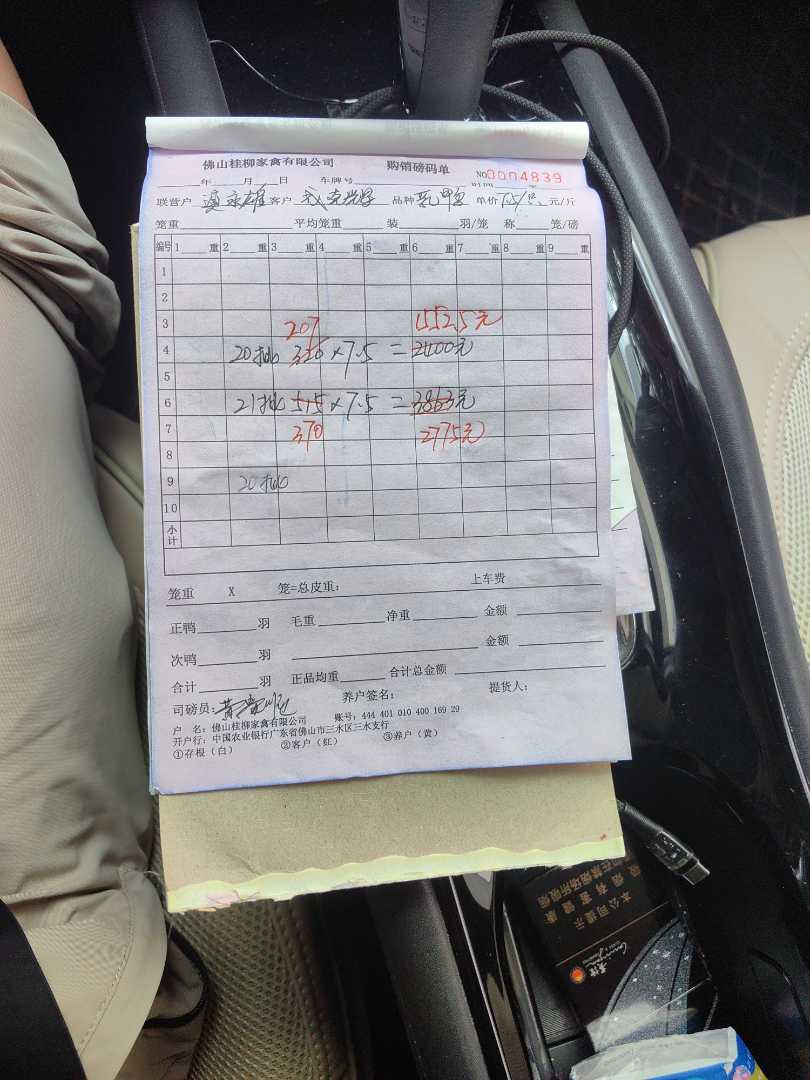 佛山桂柳家禽有限公司 购销磅码单 NO 0004839
年 月 日 车牌号 时间
联营户 客户 品种 单价 元/斤
笼重 平均笼重 装 羽/笼 称 笼/磅
编号 1 重 2 重 3 重 4 重 5 重 6 重 7 重 8 重 9 重
1
2
3 207 1552.5元
4 20 320×7.5=2400元
5
6 21 515×7.5=3863元
7 370 2775元
8
9 20
10
小计
笼重 X 笼=总皮重: 上车费
正鸭 羽 毛重 净重 金额
次鸭 羽 金额
合计 羽 正品均重 合计总金额
司磅员: 养户签名: 提货人:
户 名: 佛山桂柳家禽有限公司 账号: 444 401 010 400 169 29
开户行: 中国农业银行广东省佛山市三水区三水支行
①存根(白) ②客户(红) ③养户(黄)
本公司提示
吸烟有害健康
请勿在禁烟场所吸烟